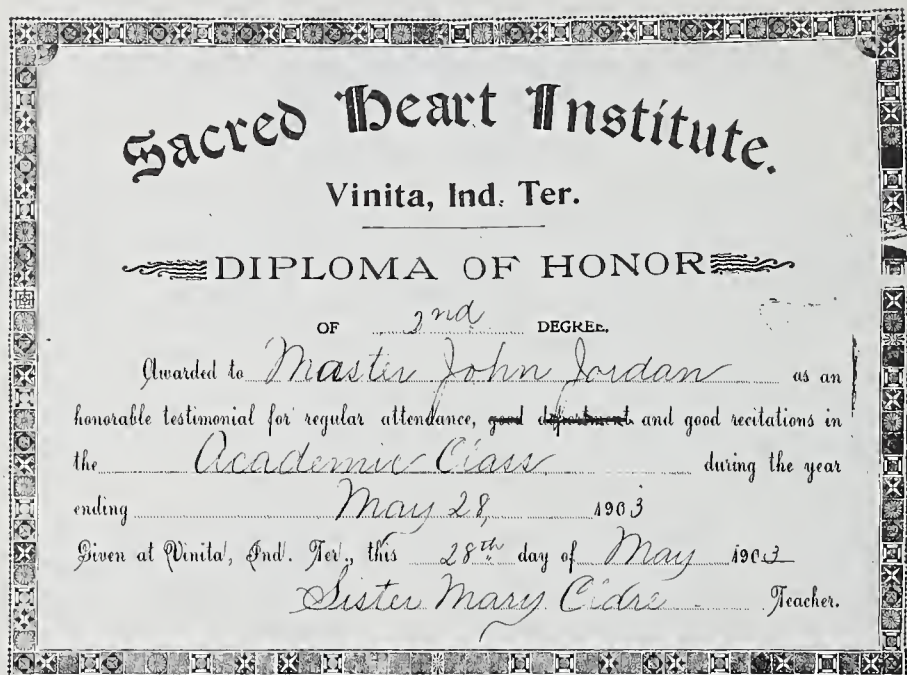 Sacred Heart Institute.
Vinita, Ind. Ter.
DIPLOMA OF HONOR
OF 2nd DEGREE.
Awarded to Master John Jordan as an
honorable testimonial for regular attendance, good deportment and good recitations in
the Academic Class during the year
ending May 28, 1903
Given at Vinita, Ind. Ter., this 28th day of May 1903
Sister Mary Teacher.